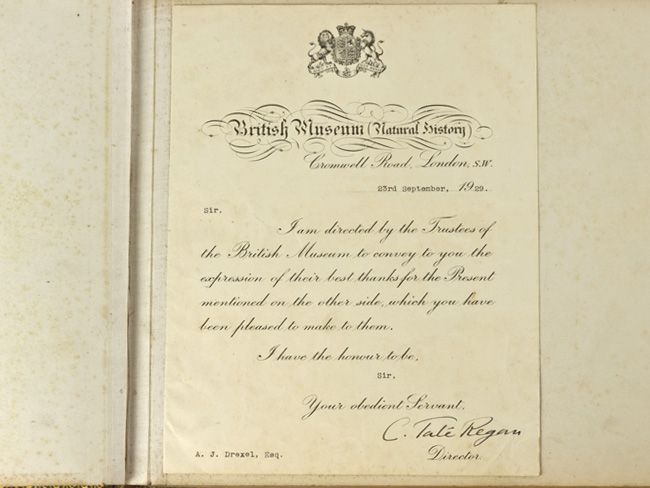 British Museum (Natural History)
Cromwell Road, London, S.W.
23rd September, 1929.
Sir.
I am directed by the Trustees of
the British Museum to convey to you the
expression of their best thanks for the Present
mentioned on the other side, which you have
been pleased to make to them.
I have the honour to be,
Sir.
Your obedient Servant,
C. Tate Regan
Director.
A. J. Drexel, Esq.